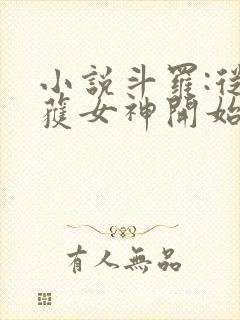 小說斗羅:從
獲女神開始
有人無品